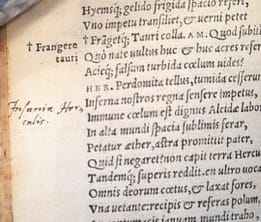 Hyemsq́; gelido frigida spacio refert,
Vno impetu transiliet, & uerni petet
† Frangere tauri
† Frãgetq́; Tauri colla. AM. Quod subito
Quò nate uultus huc & huc acres refers
Acieq́; falsum turbida cœlum uides?
HER. Perdomita tellus, tumida cesserunt
Inferna nostros regna sensere impetus,
Insania Herculis.
Immune cœlum est dignus Alcidæ labor
In alta mundi spacia sublimis ferar,
Petatur æther, astra promittit pater,
Quid si negaret? non capit terra Hercu
Tandemq́; superis reddit. en ultro uoca
Omnis deorum cœtus, & laxat fores,
Vna uetante: recipis & reseras polum,
mundi traho